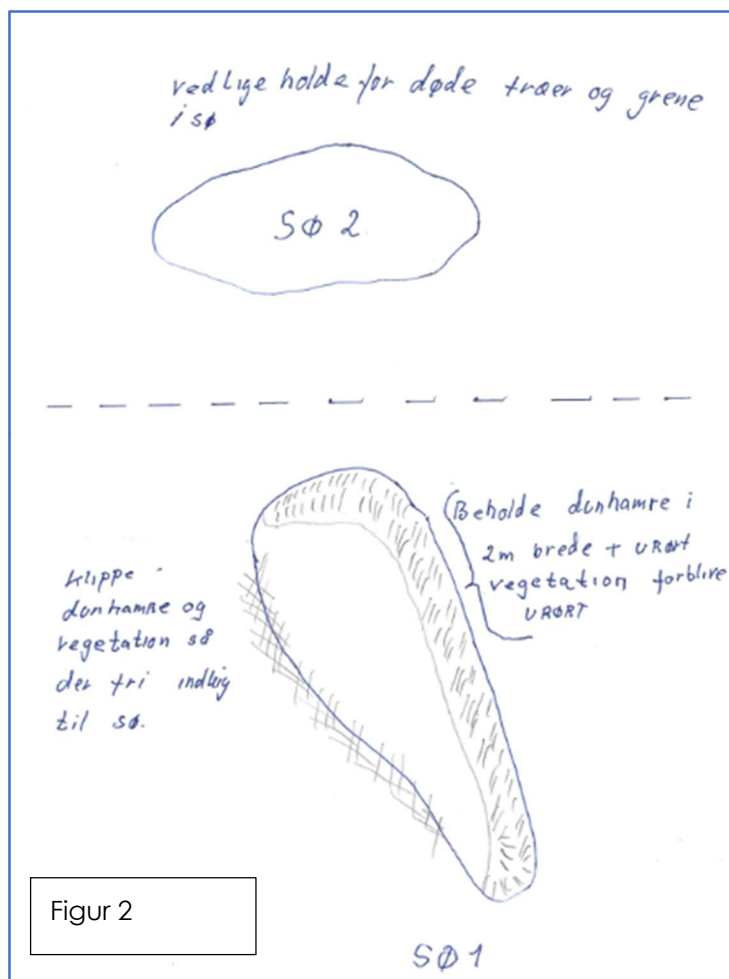 vedlige holde for døde træer og grene
i sø
SØ 2
(Beholde dunhamre i
2m brede + URØRT
vegetation forblive
URØRT
Klippe
dunhamre og
vegetation så
der fri indkig
til sø.
Figur 2
SØ 1